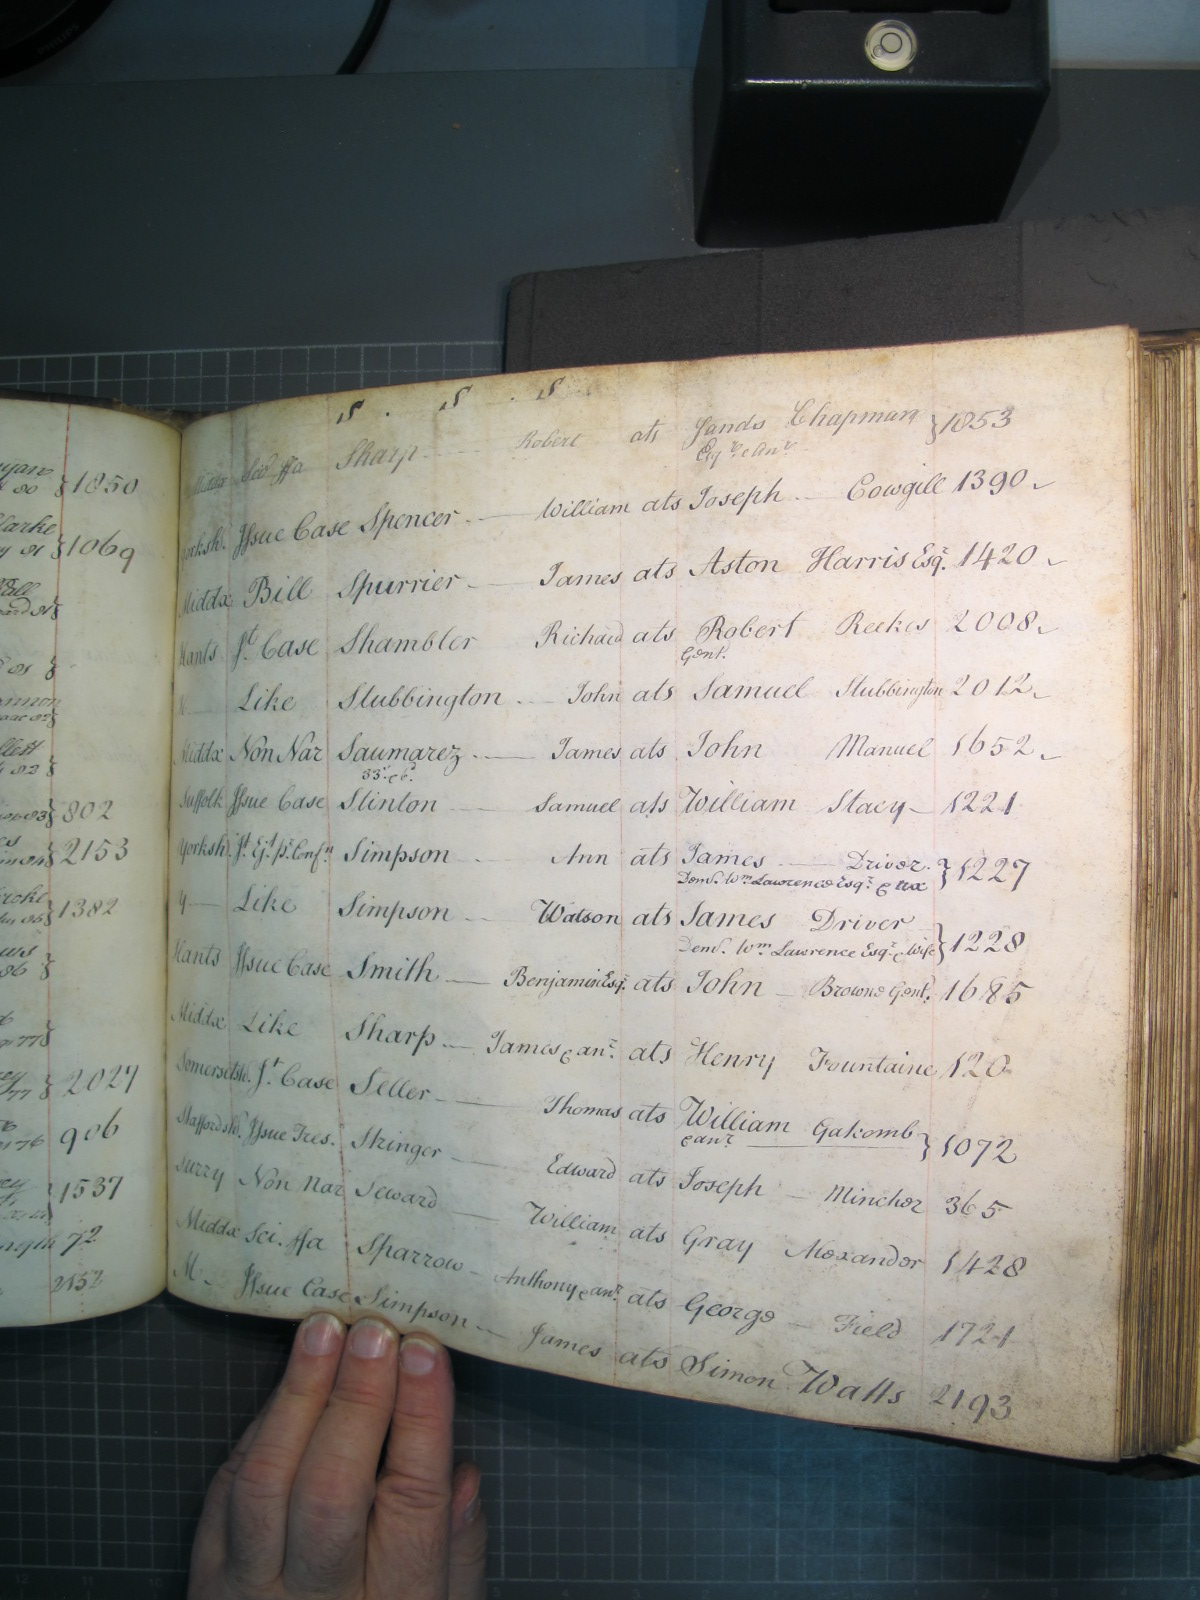 S . S . S
Middx Sci ffa Sharp Robert ats Sands Chapman } 1853
Esqr. & anr.
Yorksh. Issue Case Spencer William ats Joseph Cowgill 1390
Middx Bill Spurrier James ats Aston Harris Esqr. 1420
Hants Jt. Case Shambler Richard ats Robert Reekes 2008
Gent.
Like Stubbington John ats Samuel Stubbington 2012
Middx Non Nar Saumarez James ats John Manuel 1652
Suffolk Issue Case Stinton Samuel ats William Stacy 1221
Yorksh. Jt. Simpson Ann ats James Driver } 1227
Dem. Wm. Lawrence Esqr. & ux
y Like Simpson Watson ats James Driver } 1228
Dem. Wm. Lawrence Esqr. & Wife
Hants Issue Case Smith Benjamin Esqr. ats John Browne Gent. 1685
Middx Like Sharp James & anr. ats Henry Fountaine 120
Somersetsh. Jt. Case Seller Thomas ats William Gakomb } 1072
& anr.
Staffordsh. Issue Tres. Stringer Edward ats Joseph Mincher 365
Surry Non Nar Seward William ats Gray Alexander 1428
Middx Sci. ffa Sparrow Anthony & anr. ats George Field 1721
M Issue Case Simpson James ats Simon Watts 2193
} 1850
} 1069
} 802
} 2153
} 1382
} 2027
906
} 1537
72
2152